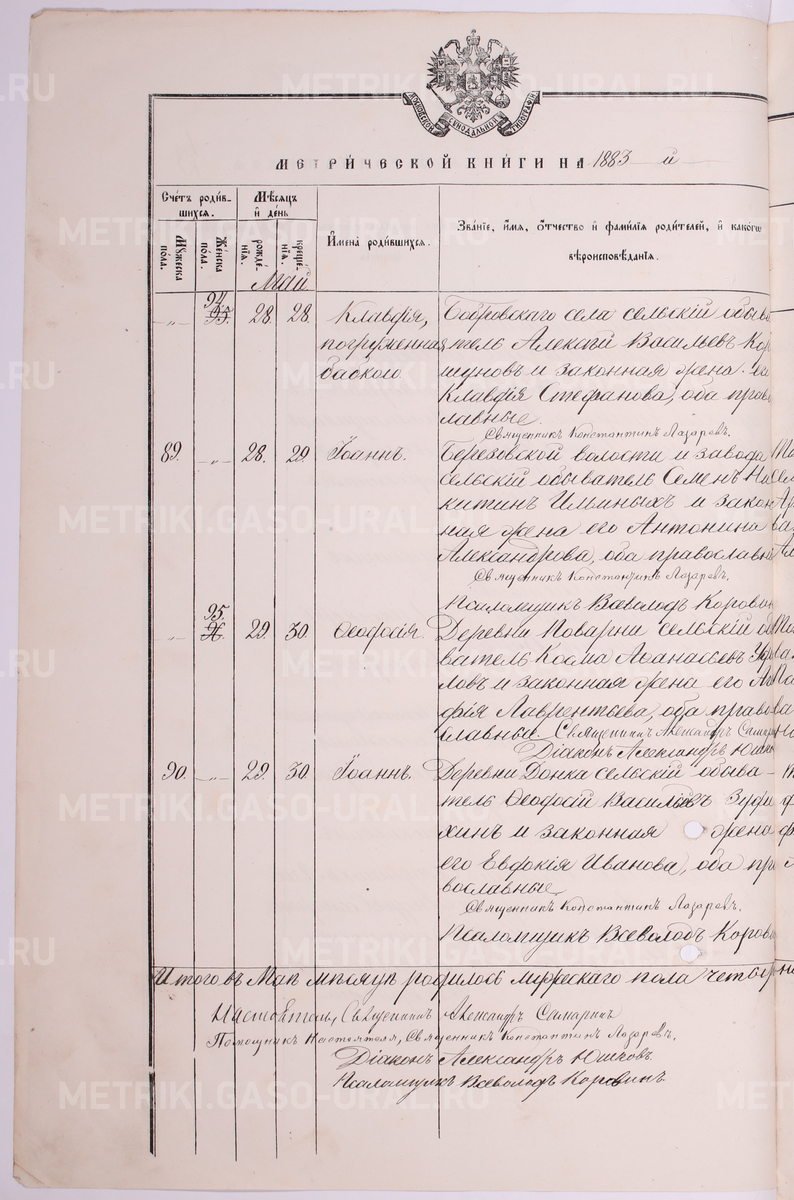 МОСКОВСКОЙ СИНОДАЛЬНОЙ ТИПОГРАФІИ
МЕТРИ́ЧЕСКОЙ КНИ́ГИ НА 1883 й
Сче́тъ роди́в-
шихся.
Мѣ́сяцъ
и҆ де́нь
И҆мена̀ роди́вшихся.
Зва́нїе, и҆́мя, ѻ҆́тчество и҆ фами́лїя роди́телей, и҆ како́гѡ
вѣроисповѣ́данїя.
Мꙋ́жеска по́ла.
Же́нска по́ла.
рожде́нїѧ.
креще́нїѧ.
Май
" 94 95. 28. 28. Клавдія, Бобровскаго села сельскій обыва
погруженная тель Алексѣй Васильевъ Кор
бабкою шуновъ и законная жена его
Клавдія Стефанова, оба право
славные.
Священникъ Константинъ Лазаревъ.
89. " 28. 29. Іоаннъ. Березовской волости и завода
сельскій обыватель Семенъ Ни
китинъ Ильиныхъ и закон
ная жена его Антонина
Александрова, оба православн
Священникъ Константинъ Лазаревъ.
Псаломщикъ Всеволодъ Коровин
" 95 96. 29. 30. Ѳеодосія. Деревни Поварни сельскій об
ватель Косма Аѳанасьевъ
ловъ и законная жена его
фія Лаврентьева, оба право
славные. Священникъ Александръ Самарин
Діаконъ Александръ Юшков
90. " 29. 30. Іоаннъ. Деревни Донка сельскій обыва-
тель Ѳеодосій Васильевъ
хинъ и законная жена
его Евдокія Иванова, оба пра
вославные
Священникъ Константинъ Лазаревъ.
Псаломщикъ Всеволодъ Корови
Итого въ Маѣ мѣсяцѣ родилось мужескаго пола четыр
Настоятель, Священникъ Александръ Самаринъ
Помощникъ Настоятеля, Священникъ Константинъ Лазаревъ.
Діаконъ Александръ Юшковъ.
Псаломщикъ Всеволодъ Коровинъ
METRIKI.GASO-URAL.RU